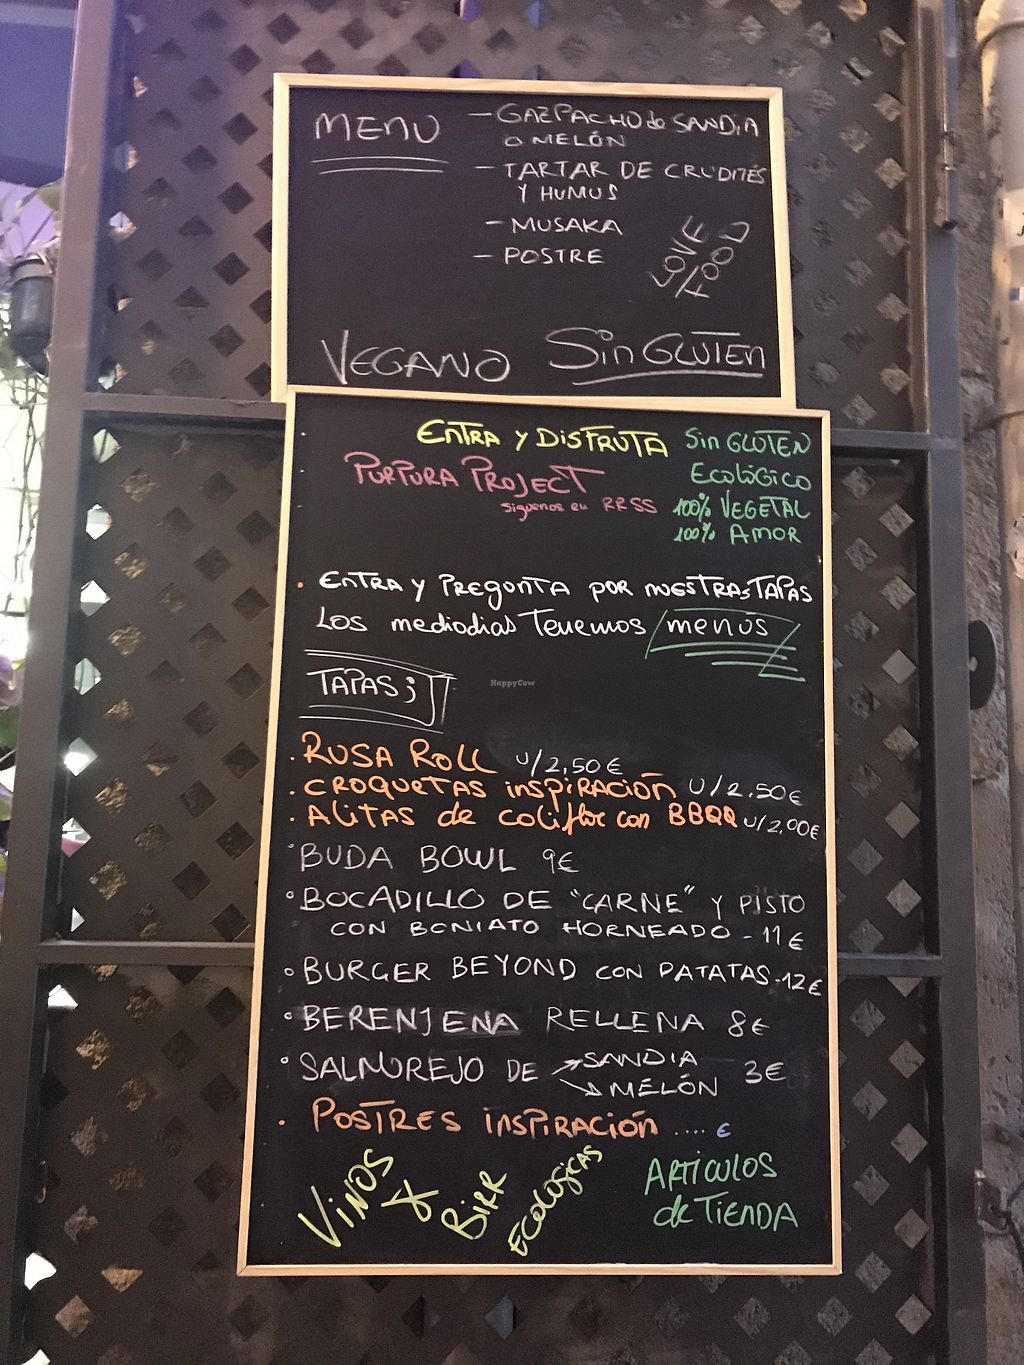 MENU
- GAZPACHO de SANDIA
O MELÓN
- TARTAR DE CRUDITÉS
Y HUMUS
- MUSAKA
- POSTRE
LOVE
FOOD
VEGANO Sin GLUTEN
ENTRA Y DISFRUTA
PURPURA PROJECT
siguenos en RRSS
Sin GLUTEN
Ecológico
100% VEGETAL
100% AMOR
. ENTRA Y PREGUNTA POR NUESTRAS TAPAS
LOS mediodias Tenemos menús
TAPAS ;
HappyCow
. RUSA ROLL u/2,50€
. CROQUETAS inspiRACIÓN u/2.50€
. ALITAS de coliflor con BBQQ u/2,00€
BUDA BOWL 9€
BOCADILLO DE "CARNE" Y PISTO
CON BONIATO HORNEADO - 11€
BURGER BEYOND CON PATATAS - 12€
BERENJENA RELLENA 8€
SALMOREJO DE SANDIA
MELÓN 3€
. POSTRES inspiración .... €
VINOS
X
BIRR
ECOLÓGICAS
ARTICULOS
de TIENDA